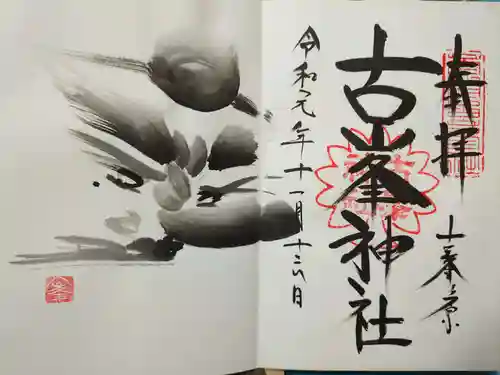 奉拝
古峯神社
令和元年十一月十三日